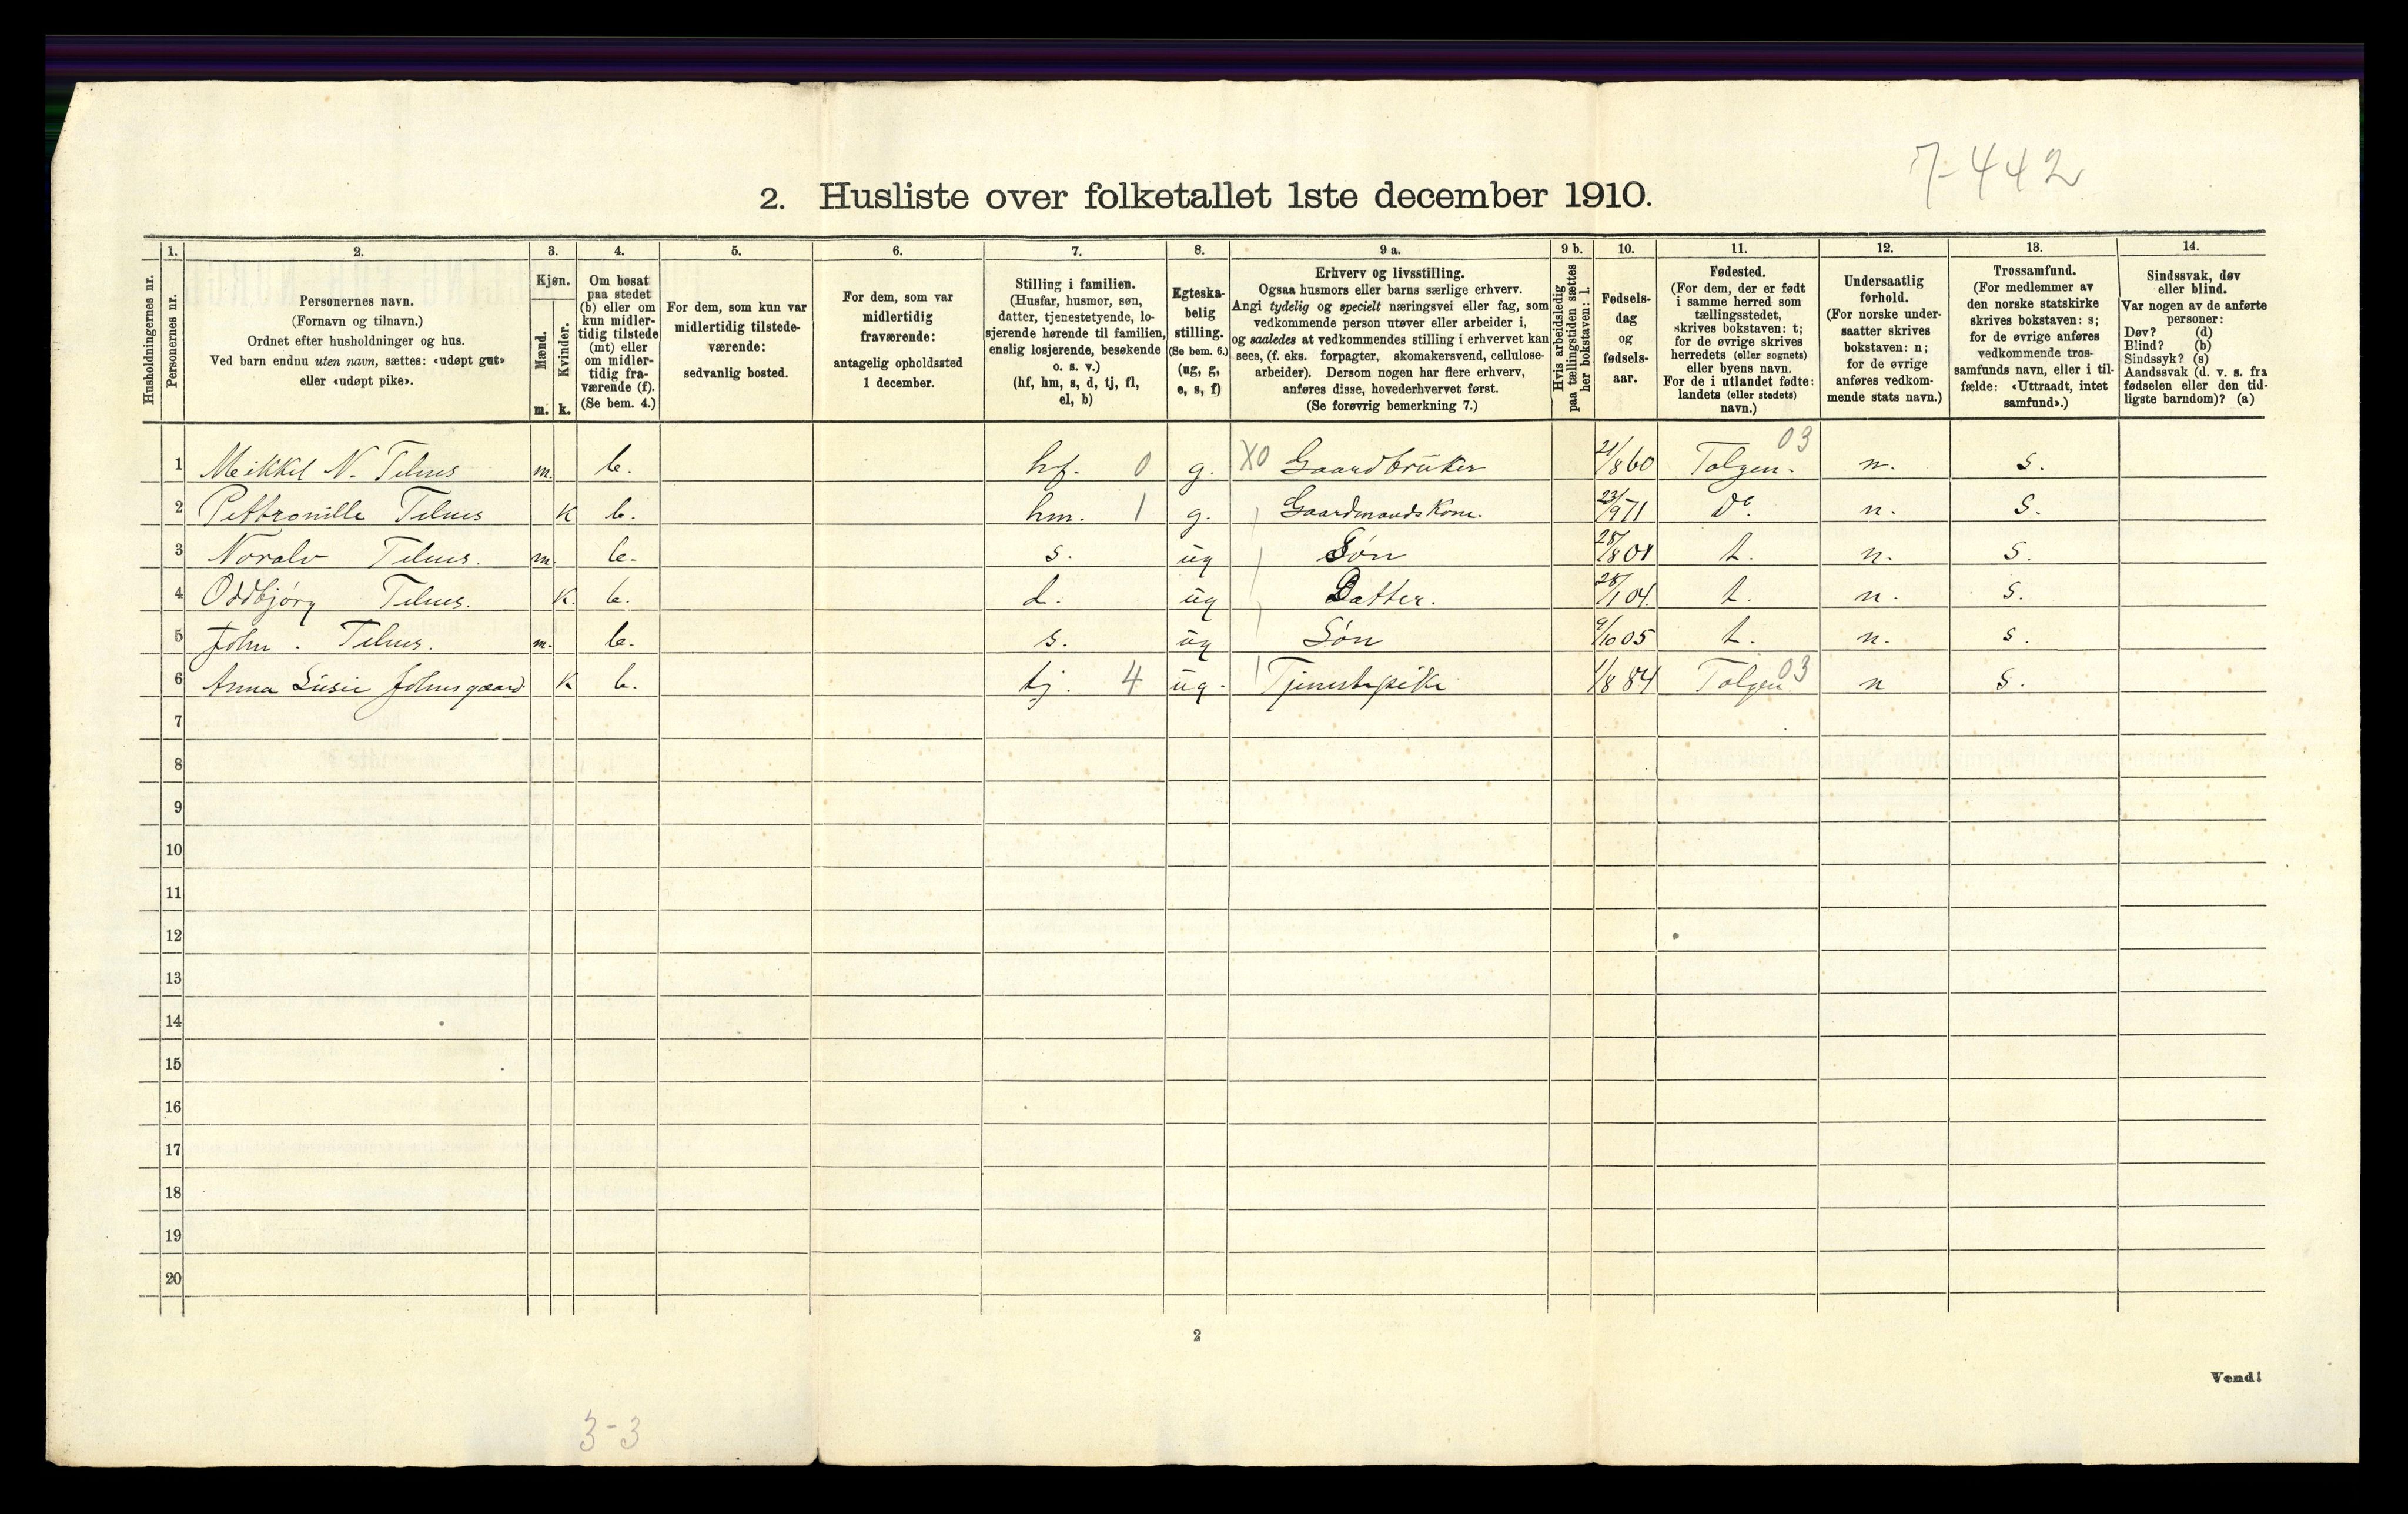 7-442
2. Husliste over folketallet 1ste december 1910.
Husholdningernes nr.
1. Personernes nr.
2. Personernes navn.
(Fornavn og tilnavn.)
Ordnet efter husholdninger og hus.
Ved barn endnu uten navn, sættes: «udøpt gut»
eller «udøpt pike».
3. Kjøn.
Mænd. m.
Kvinder. k.
4. Om bosat
paa stedet
(b) eller om
kun midler-
tidig tilstede
(mt) eller
om midler-
tidig fra-
værende (f).
(Se bem. 4.)
5. For dem, som kun var
midlertidig tilstede-
værende:
sedvanlig bosted.
6. For dem, som var
midlertidig
fraværende:
antagelig opholdssted
1 december.
7. Stilling i familien.
(Husfar, husmor, søn,
datter, tjenestetyende, lo-
sjerende hørende til familien,
enslig losjerende, besøkende
o. s. v.)
(hf, hm, s, d, tj, fl,
el, b)
8. Egteska-
belig
stilling.
(Se bem. 6.)
(ug, g,
e, s, f)
9 a. Erhverv og livsstilling.
Ogsaa husmors eller barns særlige erhverv.
Angi tydelig og specielt næringsvei eller fag, som
vedkommende person utøver eller arbeider i,
og saaledes at vedkommendes stilling i erhvervet kan
sees, (f. eks. forpagter, skomakersvend, cellulose-
arbeider). Dersom nogen har flere erhverv,
anføres disse, hovederhvervet først.
(Se forøvrig bemerkning 7.)
9 b. Hvis arbeidsledig
paa tællingstiden sættes
her bokstaven: l.
10. Fødsels-
dag
og
fødsels-
aar.
11. Fødested.
(For dem, der er født
i samme herred som
tællingsstedet,
skrives bokstaven: t;
for de øvrige skrives
herredets (eller sognets)
eller byens navn.
For de i utlandet fødte:
landets (eller stedets)
navn.)
12. Undersaatlig
forhold.
(For norske under-
saatter skrives
bokstaven: n;
for de øvrige
anføres vedkom-
mende stats navn.)
13. Trossamfund.
(For medlemmer av
den norske statskirke
skrives bokstaven: s;
for de øvrige anføres
vedkommende tros-
samfunds navn, eller i til-
fælde: «Uttraadt, intet
samfund».)
14. Sindssvak, døv
eller blind.
Var nogen av de anførte
personer:
Døv? (d)
Blind? (b)
Sindssyk? (s)
Aandssvak (d. v. s. fra
fødselen eller den tid-
ligste barndom)? (a)
1 Meikkel N. m. b. hf. 0 g. X0 Gaardbruker 21/8 60 Tolgen. 03 n. s.
2 Pettronille k b. hm. 1 g. Gaardmandskone. 23/9 71 Do. n. s.
3 Noralv m. b. s. ug Søn 28/8 01 t. n. s.
4 Oddbjørg k. b. d. ug Datter. 28/1 04. t. n. s.
5 John. m. b. s. ug Søn 9/10 05 t. n. s.
6 Anna Lusie Johnsgaard k b. tj. 4 ug. Tjenestepike 1/8 84 Tolgen 03 n s.
7
8
9
10
11
12
13
14
15
16
17
18
19
20
2
Vend!
3-3